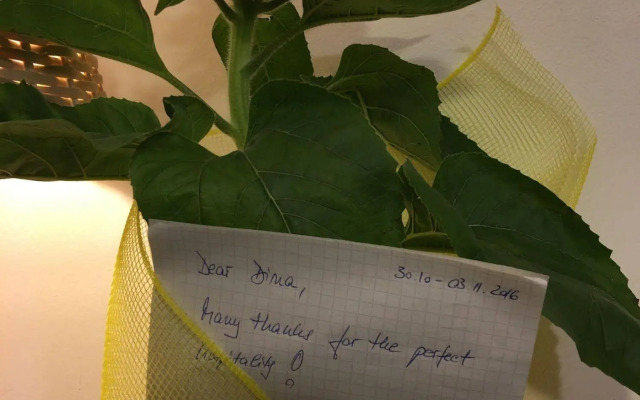 Dear Dima,
30.10 - 03.11.2016
Many thanks for the perfect
hospitality!